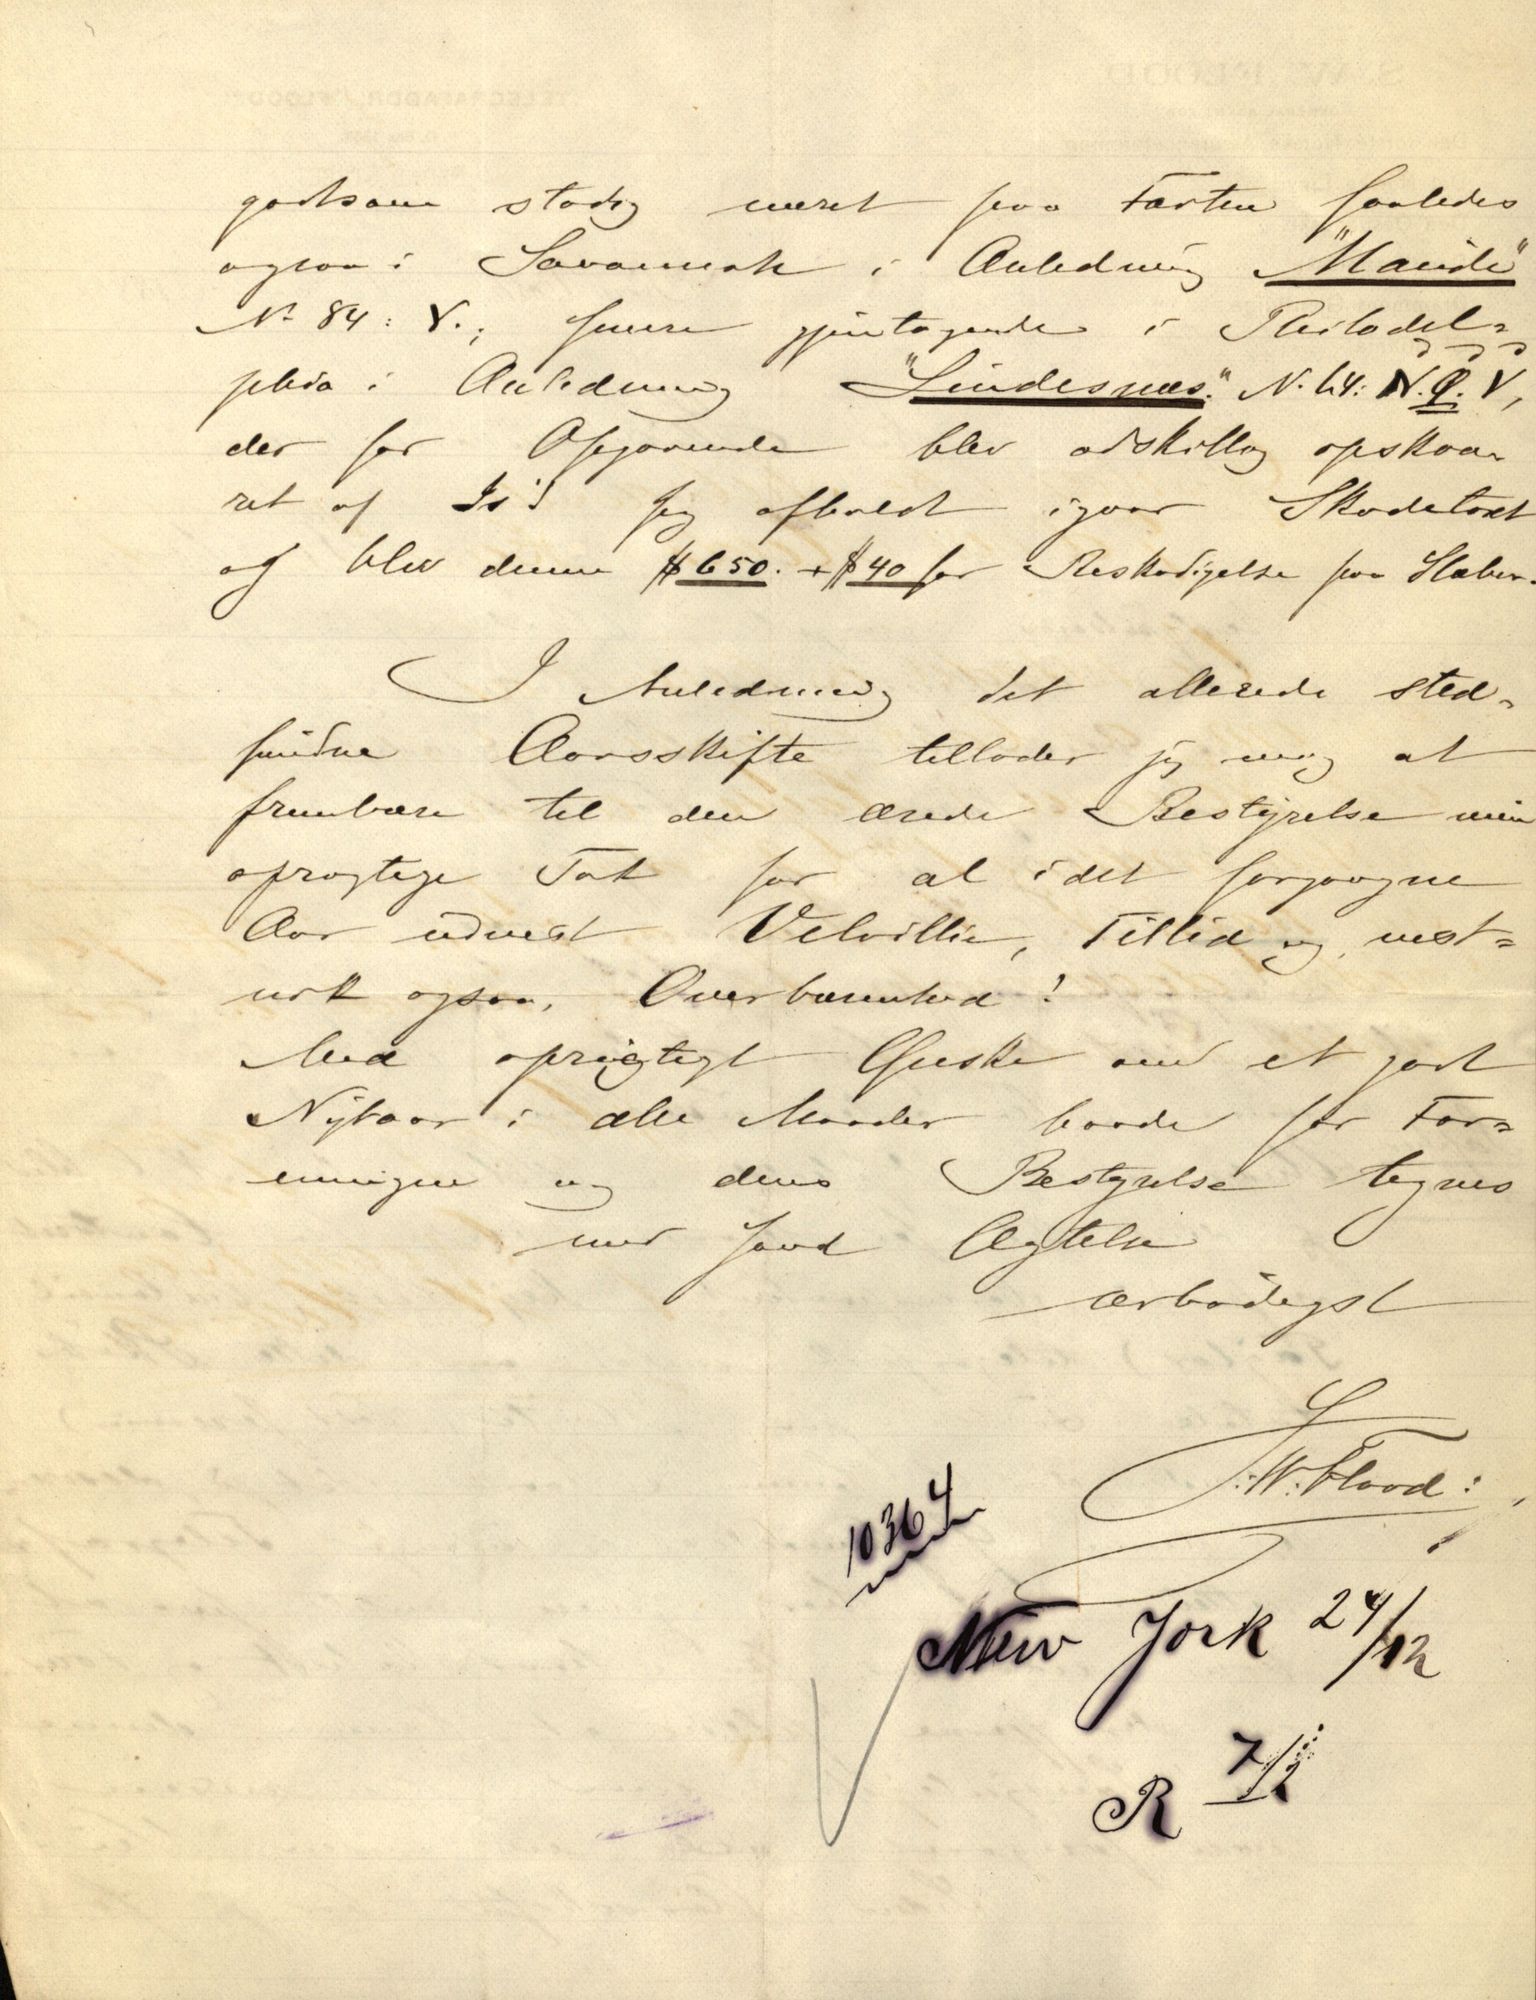 godtsom stadig været paa Farten saaledes
ogsaa i Savannah i Anledning "Maude"
No 84: V.; senere gjentagende i Philadel=
phia i Anledning "Lindesnæs." N. 64: N.Q.V,
der for Afgaaende blev adskillig opskaa-
ret af Is! Jeg afholdt igaar Skadetaxt
og blev denne $650. + $40 for Beskadigelse paa
I Anledning det allerede sted-
fundne Aarsskifte tillader jeg mig at
frembære til den ærede Bestyrelse min
oprigtige Tak for al i det forgangne
Aar udvist Velvillie, Tillid og, nest-
nok ogsaa, Overbærenhed!
Med oprigtigt Ønske om et godt
Nytaar i alle Maader baade for For=
eningen og dens Bestyrelse tegnes
med sand Agtelse
ærbødigst
S.W. Flood:
10364
New York 24/12
R 7/1